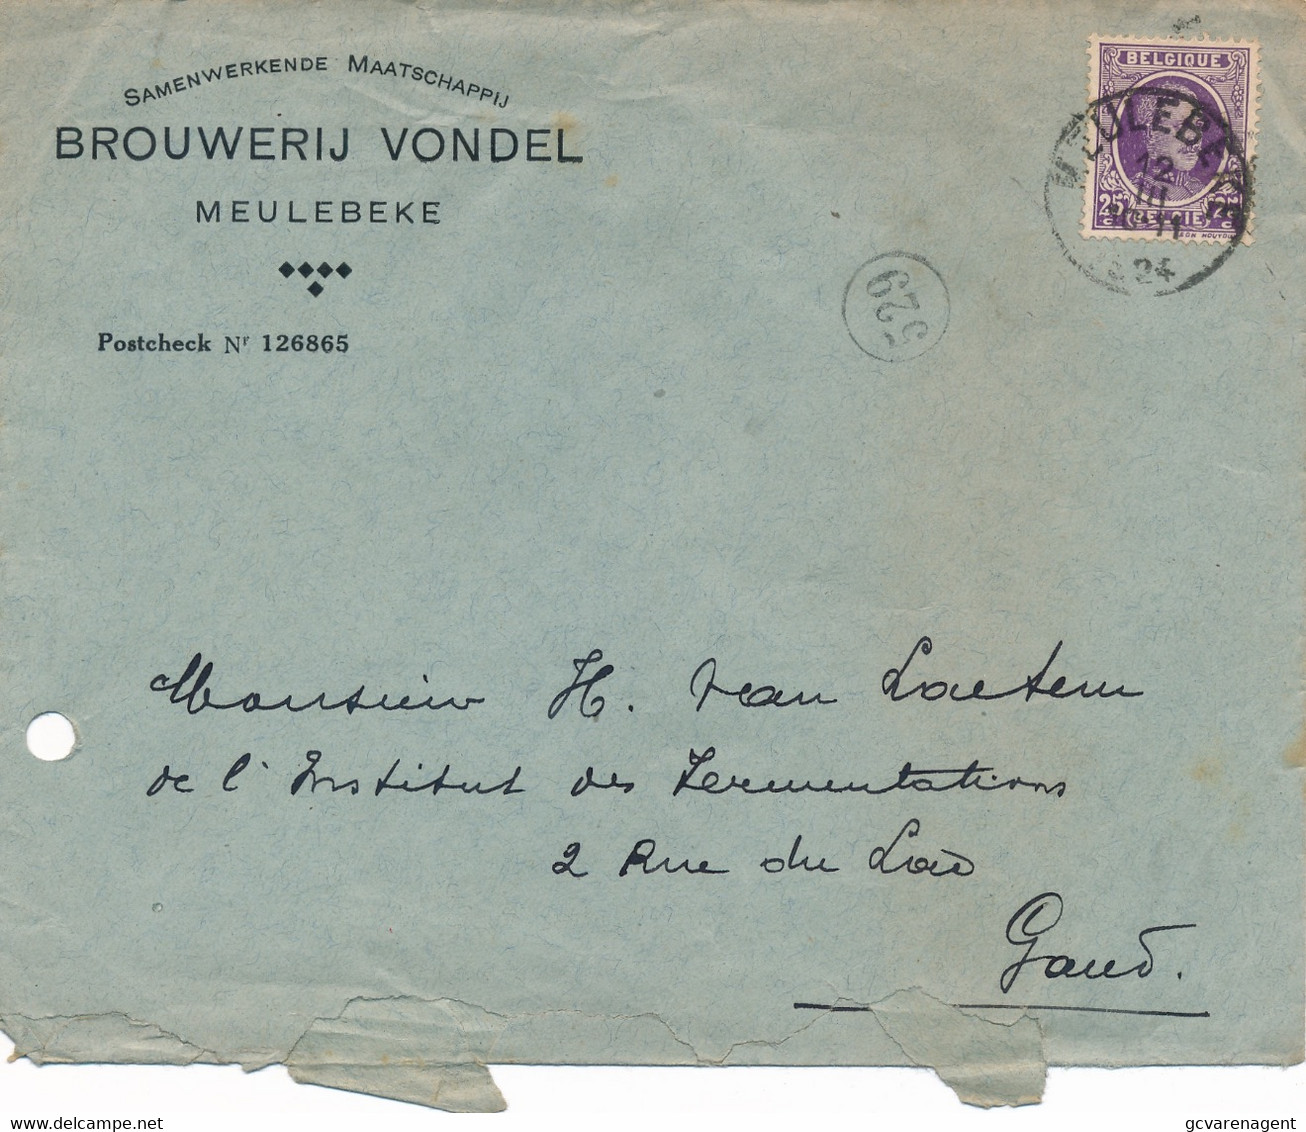 SAMENWERKENDE MAATSCHAPPIJ
BROUWERIJ VONDEL
MEULEBEKE
Postcheck Nr 126865
BELGIQUE
25
BELGIË
MEULEBEKE
12
III
11
24
529
Monsieur H. Van Laetem
de l'Institut des Fermentations
2 Rue du Lac
Gand.
www.delcampe.net
gcvarenagent